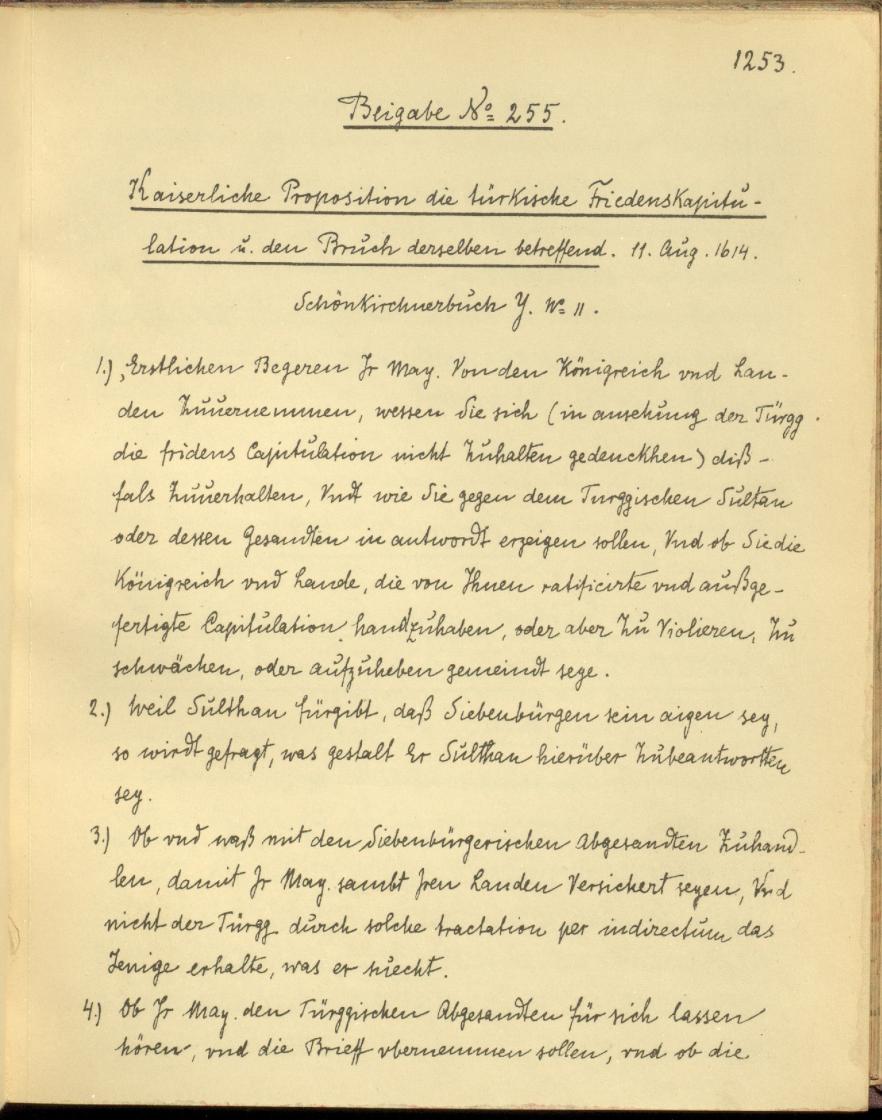 1253.
Beigabe No 255.
Kaiserliche Proposition die türkische Friedenskapitu-
lation u. den Bruch derselben betreffend. 11. Aug. 1614.
Schönkirchnerbuch Y. No 11.
1.) Erstlichen Begeren Jr May. Von den Königreich vnd Lan-
den Zuuernemmen, wessen Sie sich (in ansehung der Türgg
die fridens Capitulation nicht Zuhalten gedenckhen) diß-
fals Zuuerhalten, Vndt wie Sie gegen dem Turggischen Sultan
oder dessen Gesandten in antwordt erzeigen sollen, Vnd ob Sie die
Königreich vnd Lande, die von Ihnen ratificirte vnd außge-
fertigte Capitulation handzuhaben, oder aber Zu Violieren, Zu
schwächen, oder aufzuheben gemeindt seye.
2.) Weil Sulthan fürgibt, daß Siebenbürgen sein aigen sey,
so wirdt gefragt, was gestalt Er Sulthan hierüber Zubeantwortten
sey.
3.) Ob vnd waß mit den Siebenbürgerischen Abgesandten Zuhand-
len, damit Jr May. sambt Jren Landen Versichert seyen, Vnd
nicht der Türgg durch solche tractation per indirectum das
Jenige erhalte, was er suecht.
4.) Ob Jr May. den Türggischen Abgesandten für sich lassen
hören, vnd die Brieff vbernemmen sollen, vnd ob die